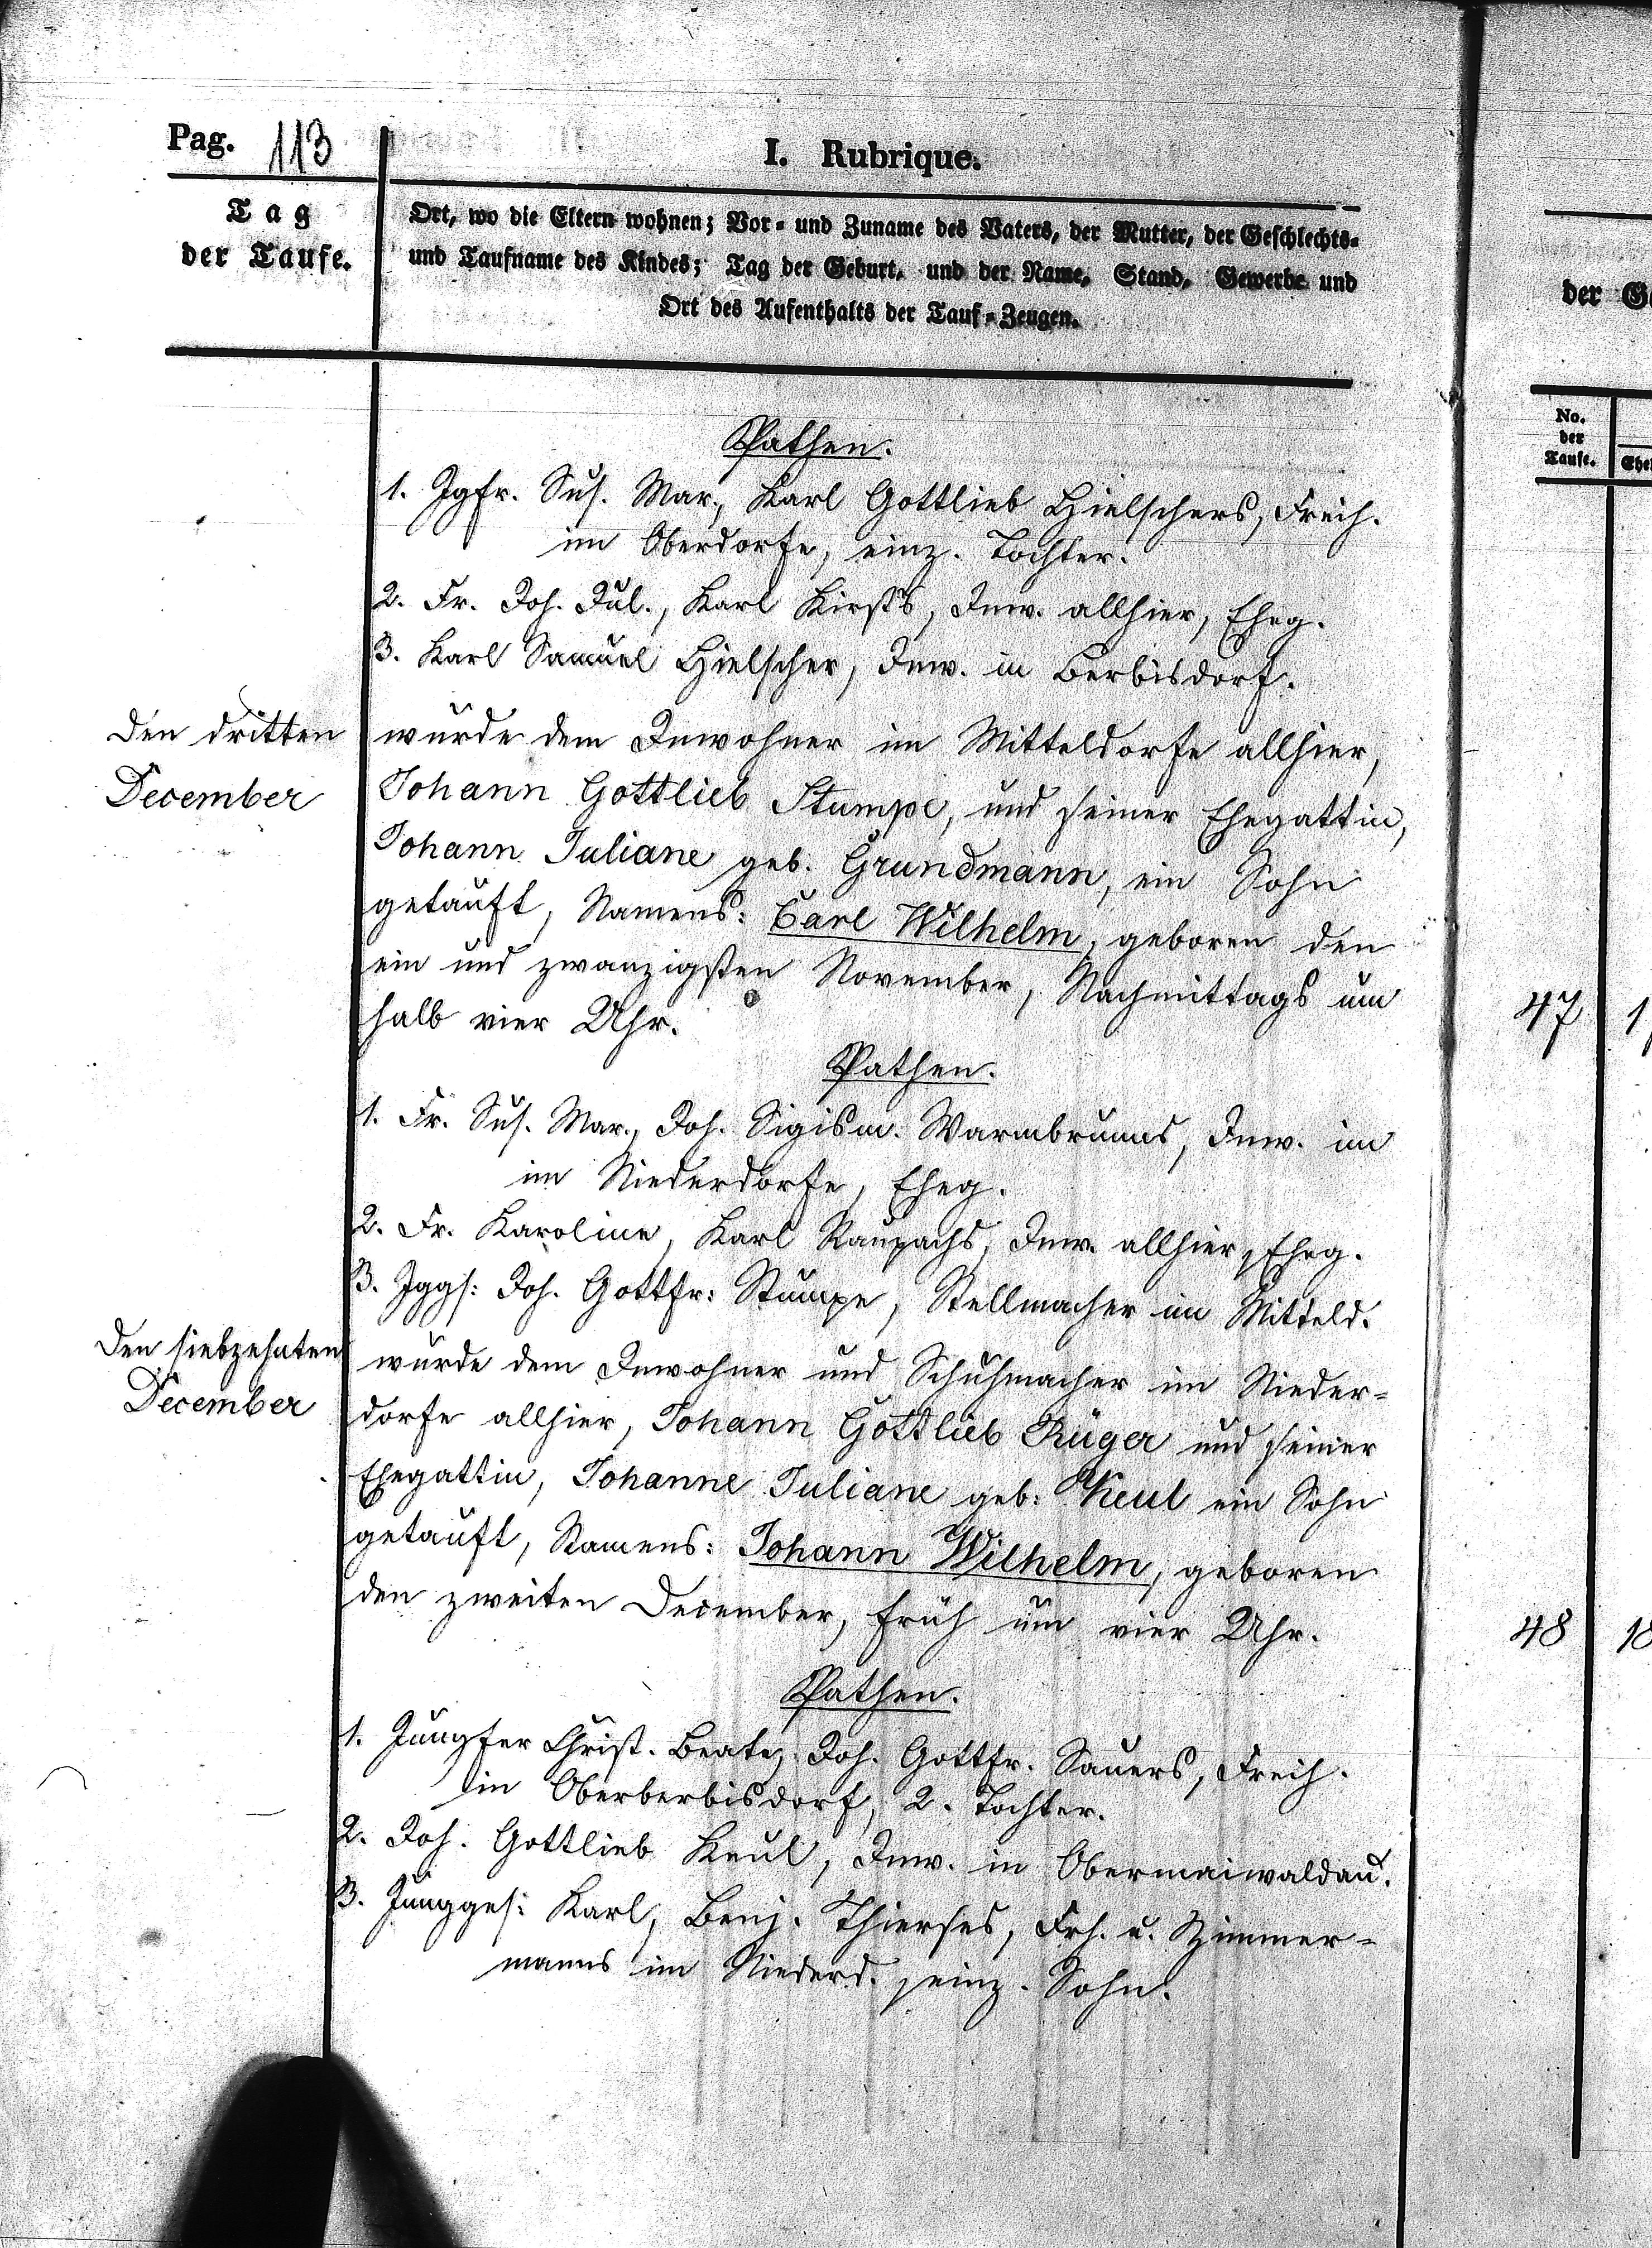 Pag. 113
I. Rubrique.
Tag
der Taufe.
Ort, wo die Eltern wohnen; Vor- und Zuname des Vaters, der Mutter, der Geschlechts-
und Taufname des Kindes; Tag der Geburt, und der Name, Stand, Gewerbe und
Ort des Aufenthalts der Tauf-Zeugen.
Pathen.
1. Jgfr. Sus. Mar., Karl Gottlieb Hielschers, Freih.
im Oberdorfe, einz. Tochter.
2. Fr. Joh. Jul., Karl Kirsts, Inw. allhier, Eheg.
3. Karl Samuel Hielscher, Inw. in Berbisdorf.
Den dritten
December
wurde dem Inwohner im Mitteldorfe allhier,
Johann Gottlieb Stumpe, und seiner Ehegattin,
Johann Juliane geb. Grundmann, ein Sohn
getauft, Namens: Carl Wilhelm, geboren den
ein und zwanzigsten November, Nachmittags um
halb vier Uhr.
Pathen.
1. Fr. Sus. Mar., Joh. Sigism. Warmbrunns, Inw. im
im Niederdorfe, Eheg.
2. Fr. Karoline, Karl Raupachs, Inw. allhier, Eheg.
3. Jggs: Joh. Gottfr: Stumpe, Stellmacher im Mitteld.
Den siebzehnten
December
wurde dem Inwohner und Schuhmacher im Nieder-
dorfe allhier, Johann Gottlieb Rüger und seiner
Ehegattin, Johanne Juliane geb: Keul ein Sohn
getauft, Namens: Johann Wilhelm, geboren
den zweiten December, früh um vier Uhr.
Pathen.
1. Jungfer Christ. Beate, Joh. Gottfr. Sauers, Freih.
in Oberberbisdorf, 2. Tochter.
2. Joh. Gottlieb Keul, Inw. in Obermaiwaldau.
3. Jungges: Karl, Benj. Thierses, Frh. u. Zimmer-
manns im Niederd. einz. Sohn.
der
No.
der
Taufe.
47
48